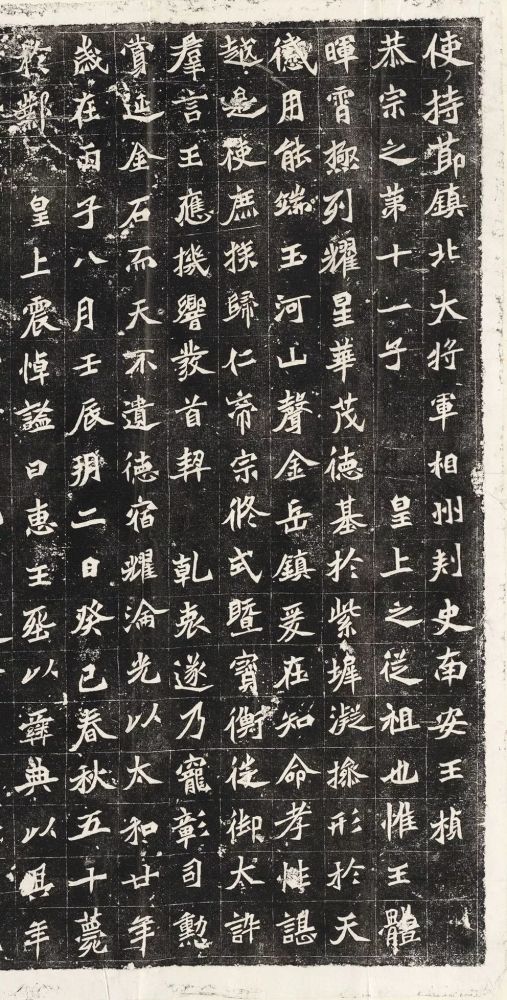 使持節鎮北大將軍相州刾史南安王楨
恭宗之第十一子　皇上之從祖也惟王體
暉霄極列耀星華茂德基於紫墀凝操形於天
儀用能端玉河山聲金岳鎮爰在知命孝性諶
越是使庶族歸仁帝宗攸式暨寶衡徙御大訊
羣言王應機響發首契　乾衷遂乃寵彰司勳
賞延金石而天不遺德宿耀淪光以太和廿年
歲在丙子八月壬辰朔二日癸巳春秋五十薨
於鄴　皇上震悼謚曰惠王葬以彝典以其年